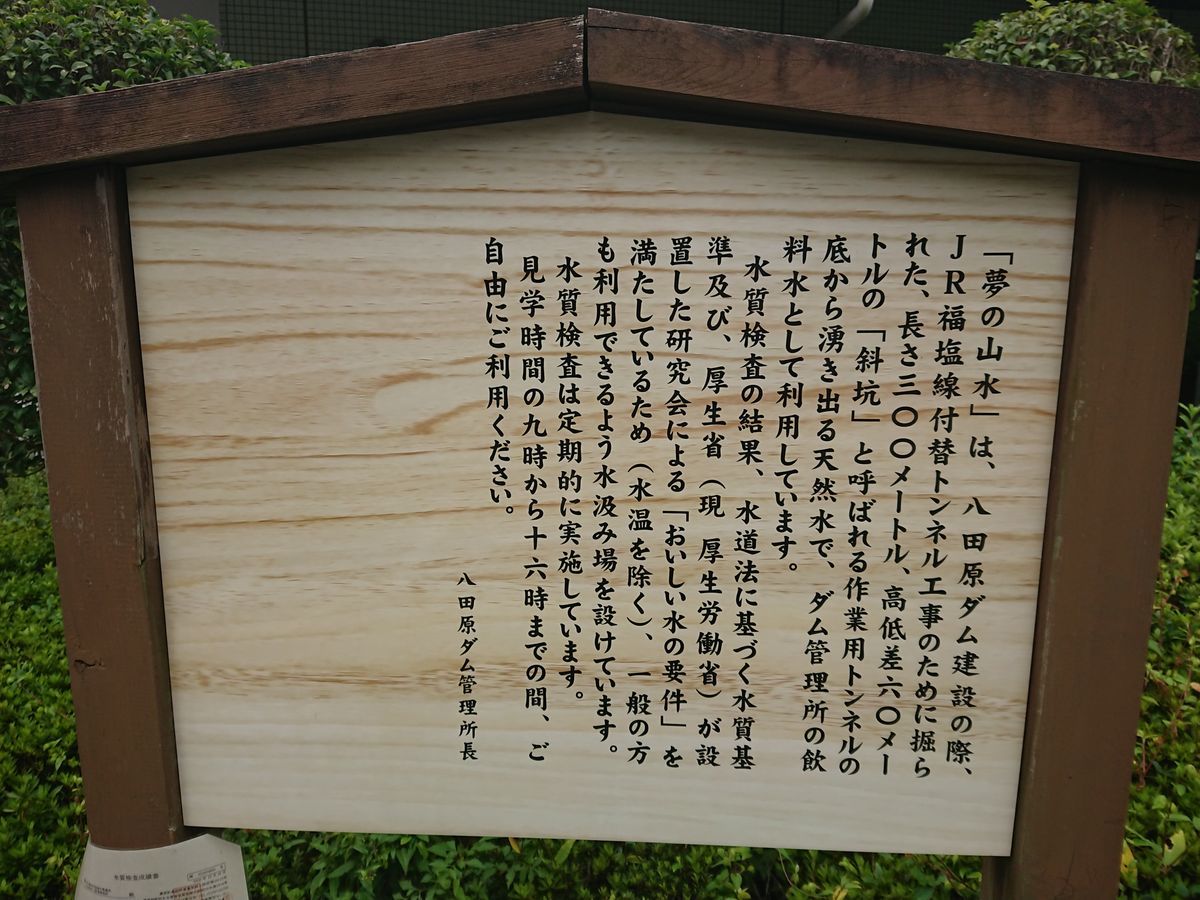 「夢の山水」は、八田原ダム建設の際、
JR福塩線付替トンネル工事のために掘ら
れた、長さ三〇〇メートル、高低差六〇メー
トルの「斜坑」と呼ばれる作業用トンネルの
底から湧き出る天然水で、ダム管理所の飲
料水として利用しています。
水質検査の結果、水道法に基づく水質基
準及び、厚生省（現 厚生労働省）が設
置した研究会による「おいしい水の要件」を
満たしているため（水温を除く）、一般の方
も利用できるよう水汲み場を設けています。
水質検査は定期的に実施しています。
見学時間の九時から十六時までの間、ご
自由にご利用ください。
八田原ダム管理所長
水質検査成績書